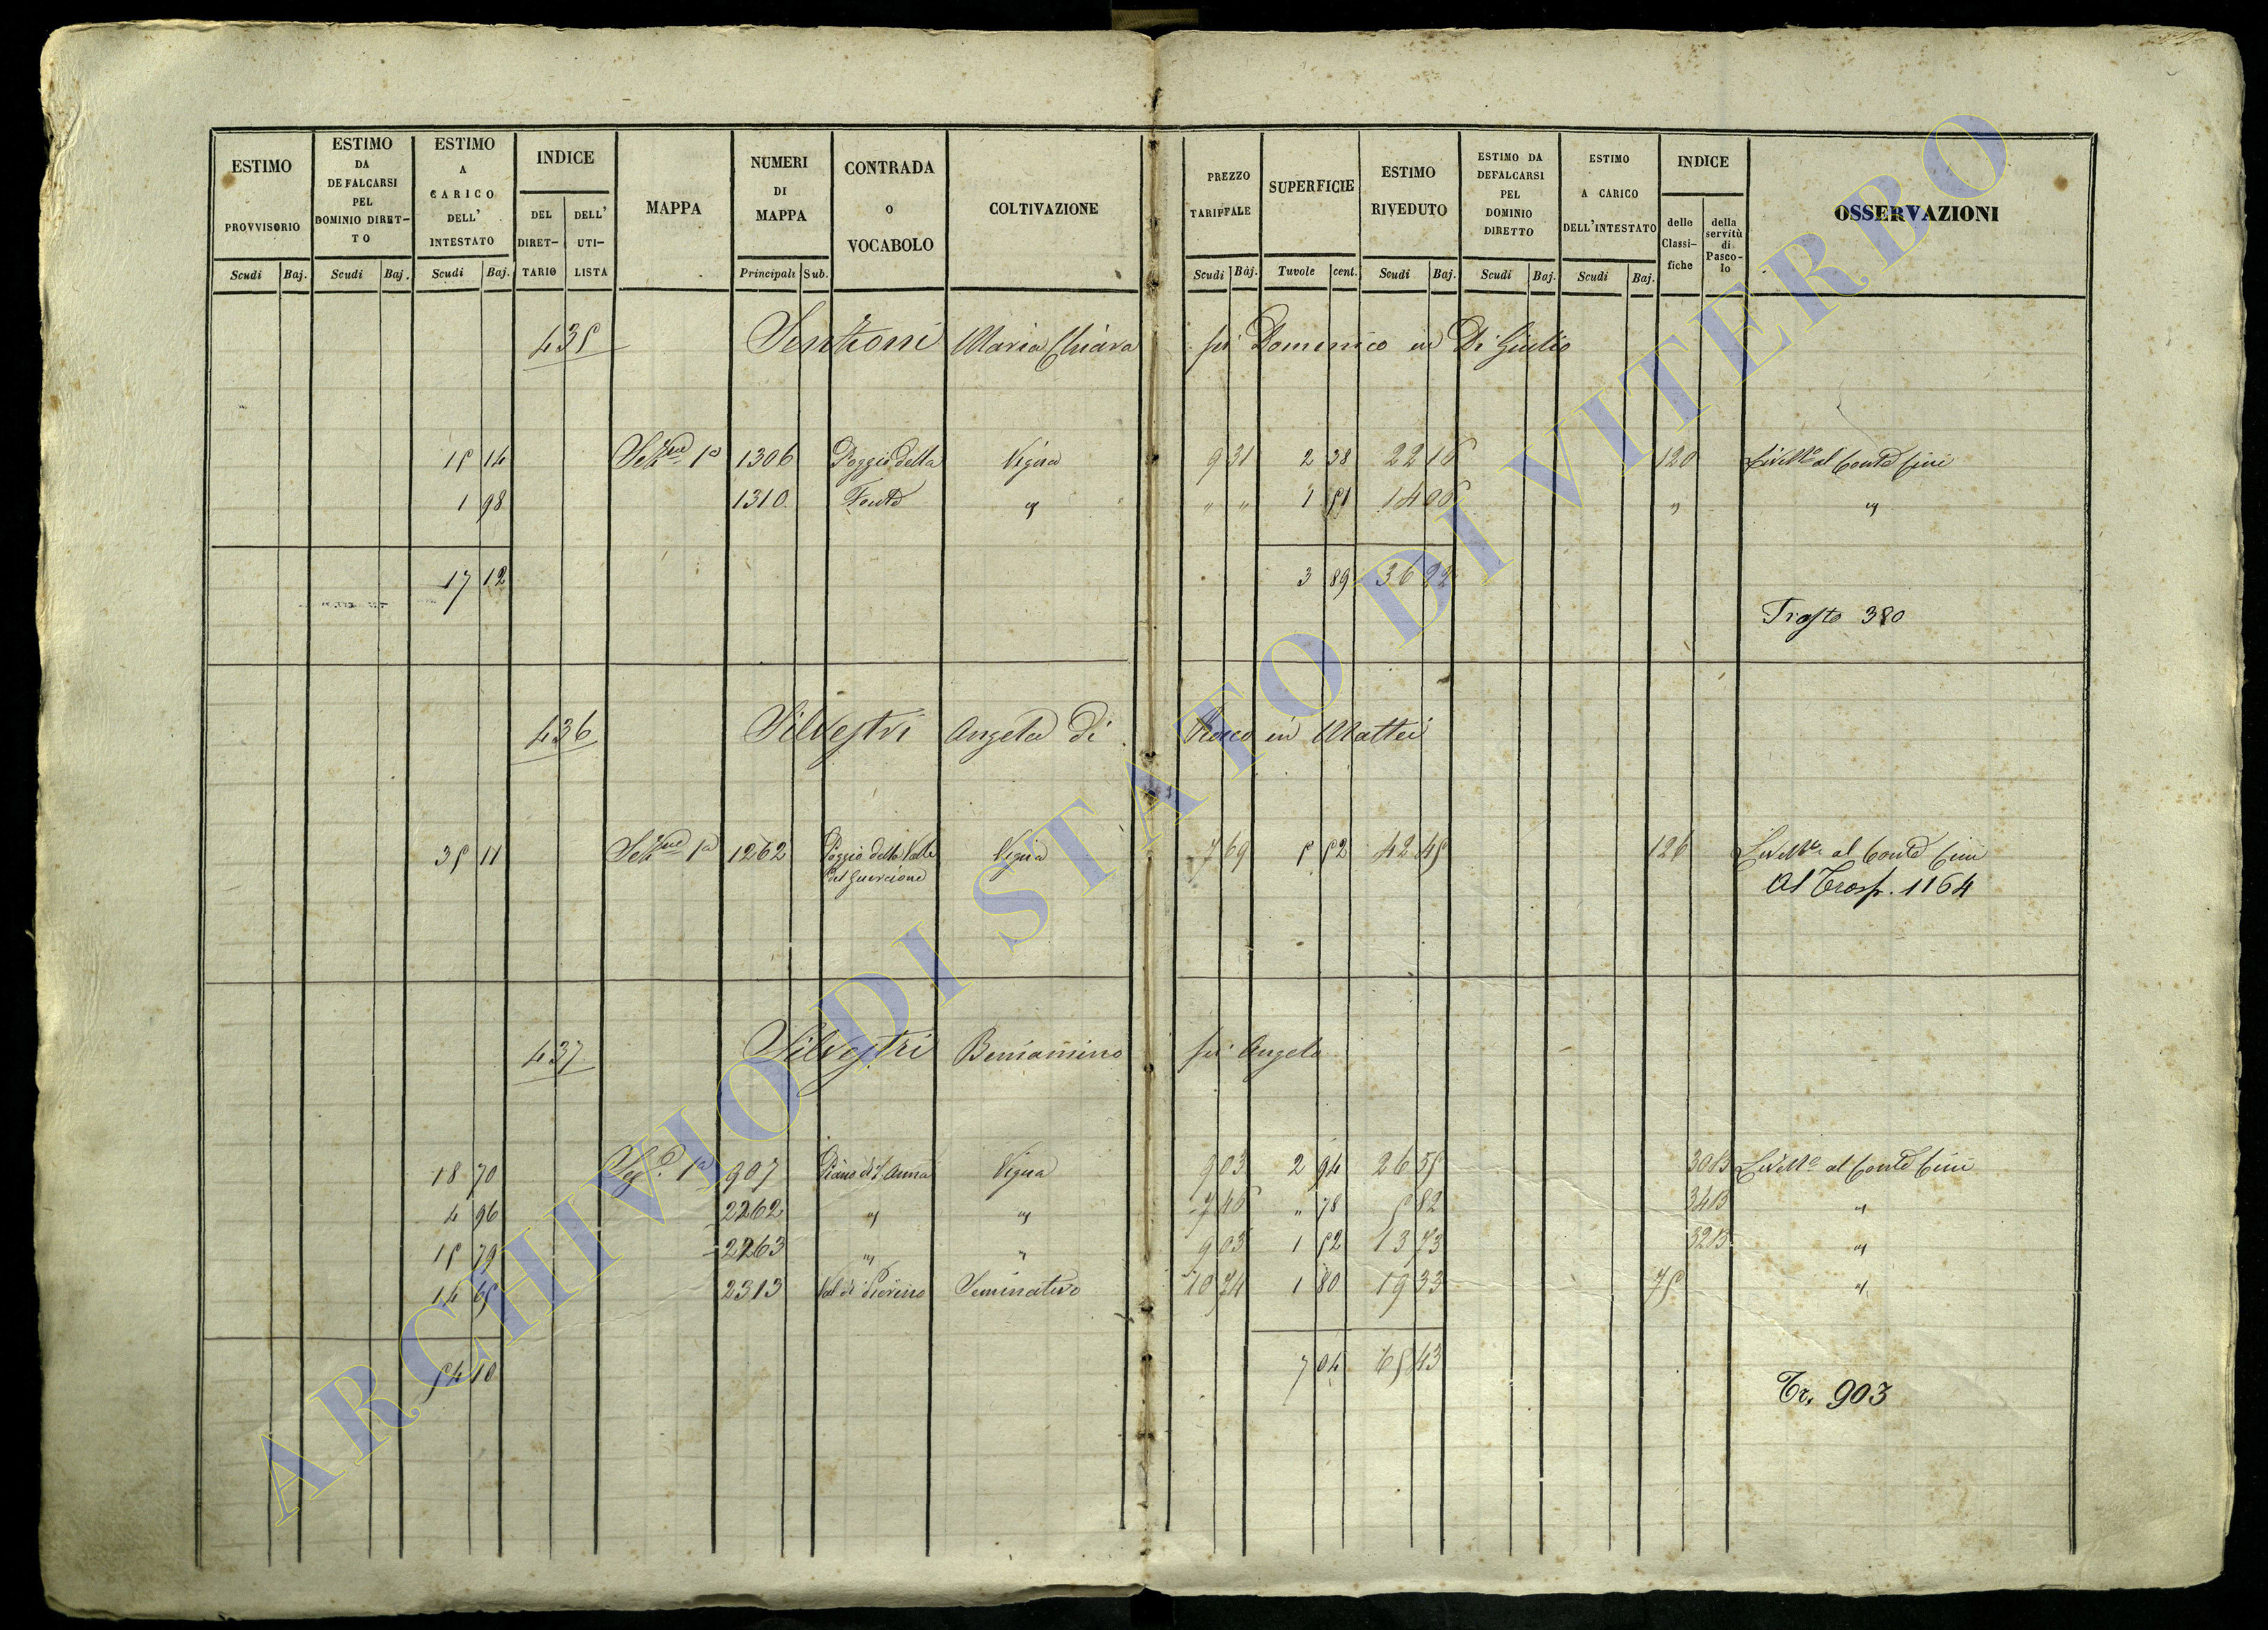 ESTIMO PROVVISORIO Scudi Baj.
ESTIMO DA DEFALCARSI PEL DOMINIO DIRET-TO Scudi Baj.
ESTIMO A CARICO DELL' INTESTATO Scudi Baj.
INDICE DEL DIRET-TARIO DELL' UTI-LISTA
MAPPA
NUMERI DI MAPPA Principali Sub.
CONTRADA O VOCABOLO
COLTIVAZIONE
PREZZO TARIFFALE Scudi Baj.
SUPERFICIE Tavole cent.
ESTIMO RIVEDUTO Scudi Baj.
ESTIMO DA DEFALCARSI PEL DOMINIO DIRETTO Scudi Baj.
ESTIMO A CARICO DELL'INTESTATO Scudi Baj.
INDICE delle Classi-fiche della servitù di Pasco-lo
OSSERVAZIONI
435 Maria Chiara fu Domenico in Di Giulio
15 14 1306 Poggio della Vigna 9 31 2 38 22 16 120 al Conte Cini
1 98 1310 Fonte " " " 1 51 14 06 " "
17 12 3 89 36 22
380
436 Silvestri Angela di Rocco in Mattei
35 11 1262 Poggio della Valle Vigna 7 69 5 52 42 45 126 al Conte Cini
del Guercione Al Trasp. 1164
437 Silvestri Beniamino fu Angelo
18 70 907 Piano di S. Anna Vigna 9 03 2 94 26 55 30 B al Conte Cini
4 96 2262 " " 7 46 " 78 5 82 34 B "
15 79 2263 " " 9 03 1 52 13 73 32 B "
14 65 2313 Val di Seminativo 10 74 1 80 19 33 75 "
54 10 7 04 65 43
Tr. 903
ARCHIVIO DI STATO DI VITERBO